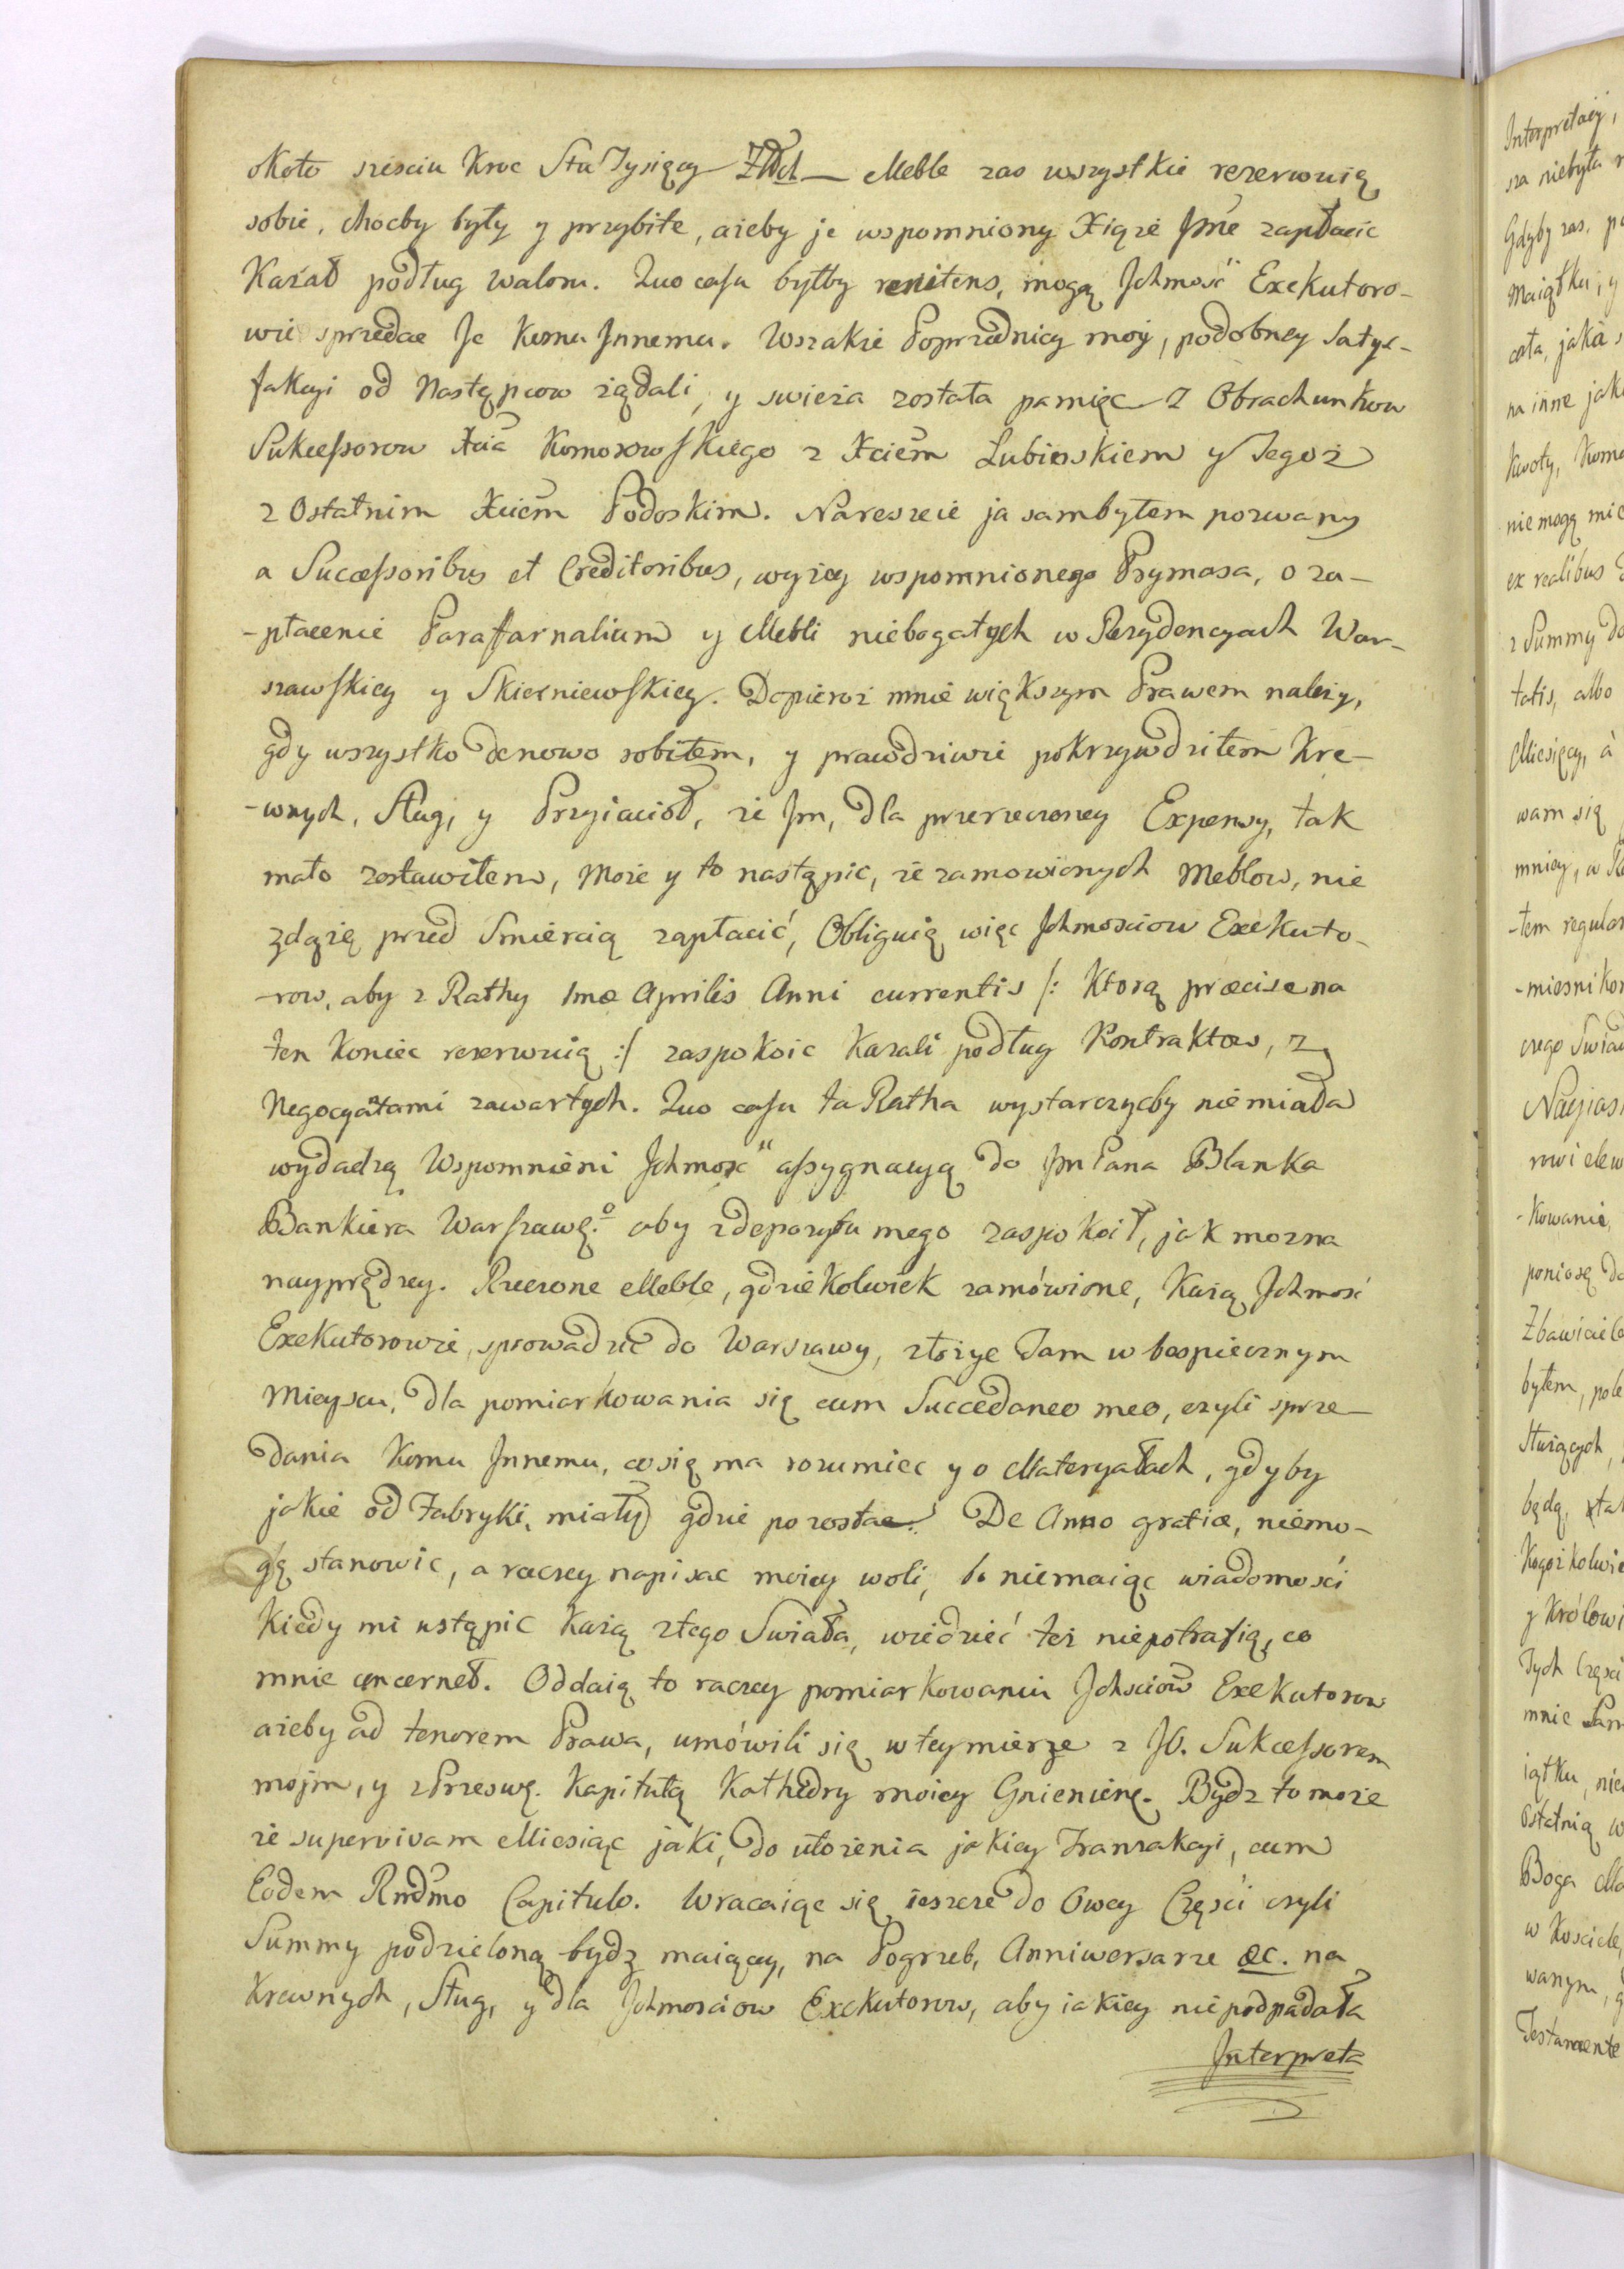 około sześciu Kroc Stu Tysięcy Złłch — Meble zas wszystkie rezerwuię
sobie, choćby były y przybite, ażeby je wspomniony Xiąże Jme zapłacic
Kazał podług waloru. Quo casu byłby renitens, mogą Ichmość Exekutoro-
wie sprzedac Je Komu Innemu. Wszakże Poprzednicy moy, podobney Satys-
fakcyi od Następcow żądali, y swieża została pamięc z Obrachunkow
Sukcessorow Xcia Komorowskiego z Xciem Lubieskiem y Tegoż
z Ostatnim Xciem Podoskim. Nareszcie ja sam byłem pozwany
a Successoribus et Creditoribus, wyżey wspomnionego Prymasa, o za-
-płacenie Paraffarnalium y Mebli niebogatych w Rezydencyach War-
szawskiey y Skierniewskiey. Dopieroż mnie większym Prawem należy,
gdy wszystko denowo robiłem, y prawdziwie pokrzywdziłem Kre-
-wnych, Sług, y Przyiacioł, że Im, dla przerzeczoney Expensy, tak
mało zostawiłem, Może y to nastąpic, że zamowionych Meblow, nie
zdążę przed Smiercią zapłacić, Obliguię więc Ichmosciow Exekuto-
-row, aby z Rathy 1mæ Aprilis Anni currentis /: Ktorą præcise na
ten Koniec rezerwuię :/ zaspokoic Kazali podług Kontraktow, z
Negocyatami zawartych. Quo casu ta Ratha wystarczycby niemiała
wydadzą Wspomnieni Ichmośc assygnacyą do Jm Pana Blanka
Bankiera Warszawgº. aby z depozytu mego zaspokoił, jak mozna
nayprędzey. Rzeczone Meble, gdziekolwiek zamówione, Każą Ichmość
Exekutorowie, sprowadzić do Warszawy, złożyc Tam w bespiecznym
Mieyscu, dla pomiarkowania się cum Succedaneo meo, czyli sprze-
dania Komu Innemu, co się ma rozumiec y o Materyałach, gdyby
jakie od Fabryki, miały gdzie pozostac. De Anno gratiæ, niemo-
gę stanowic, a raczey napisac moiey woli, bo niemaiąc wiadomości
Kiedy mi ustąpic Każą z tego Swiata, wiedzieć też niepotrafię, co
mnie concernet. Oddaię to raczey pomiarkowaniu Ichściow Exekutorow
ażeby ad tenorem Prawa, umówili się w tey mierze z JO. Sukcessorem
mojm, y z Przeswę. Kapitułą Kathedry moiey Gnienienę. Bydz to może
że supervivam Miesiąc jaki, do ułożenia jakiey Tranzakcyi, cum
Eodem Rndmo Capitulo. Wracaiąc się ieszcze do Owey Części czyli
Summy podzieloną bydz maiącey, na Pogrzeb, Anniwersarze &c. na
Krewnych, Sług, y dla Ichmosciow Exekutorow, aby iakiey niepodpadała
Interpreta

Interpretacyi,
sza niebyła
Gdyby zas,
Maiątku, y
cała, jaka
na inne
Kwoty,
niemogą
ex realibus
z Summy
tatis, albo
Miesięcy, à
wam się
mniey, w
-tem
czego
poniosę
byłem,
Służących,
będą,
y Królowi
Tych Części
mnie
iątku,
Ostatnią
Boga
w Kościele,
wanym,
Testamente